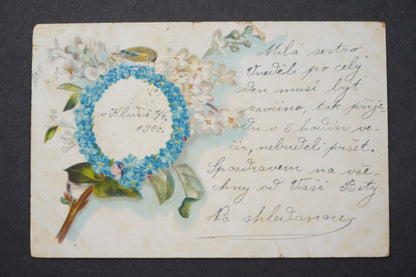 v Kladně 7/6
1906.
Milá sestro
V neděli po celý
den musí byt
zavřino, tak přije
du v 5 hodin ve-
čír, nebudeli pršet.
S pozdravem na vše-
chny od Vaší Bety
Na shledanou